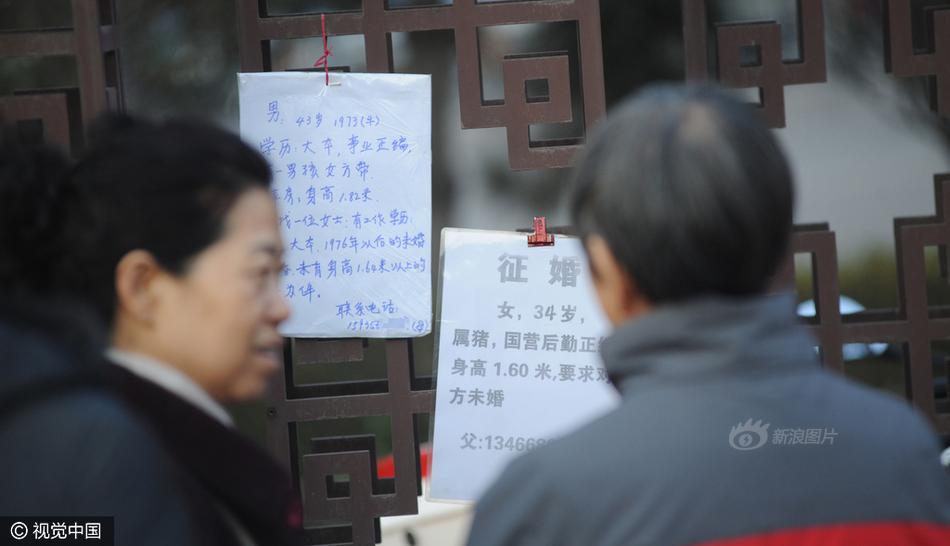 男: 43岁 1973(牛)
学历:大本,事业正编,
一男孩女方带.
房,身高1.82米.
找一位女士:有工作学历:
大本.1976年以后的未婚
未育身高1.64米以上的
办伴。
联系电话:
(母)
征 婚
女,34岁,
属猪,国营后勤正
身高1.60米,要求
方未婚
父:134668
新浪图片
© 视觉中国